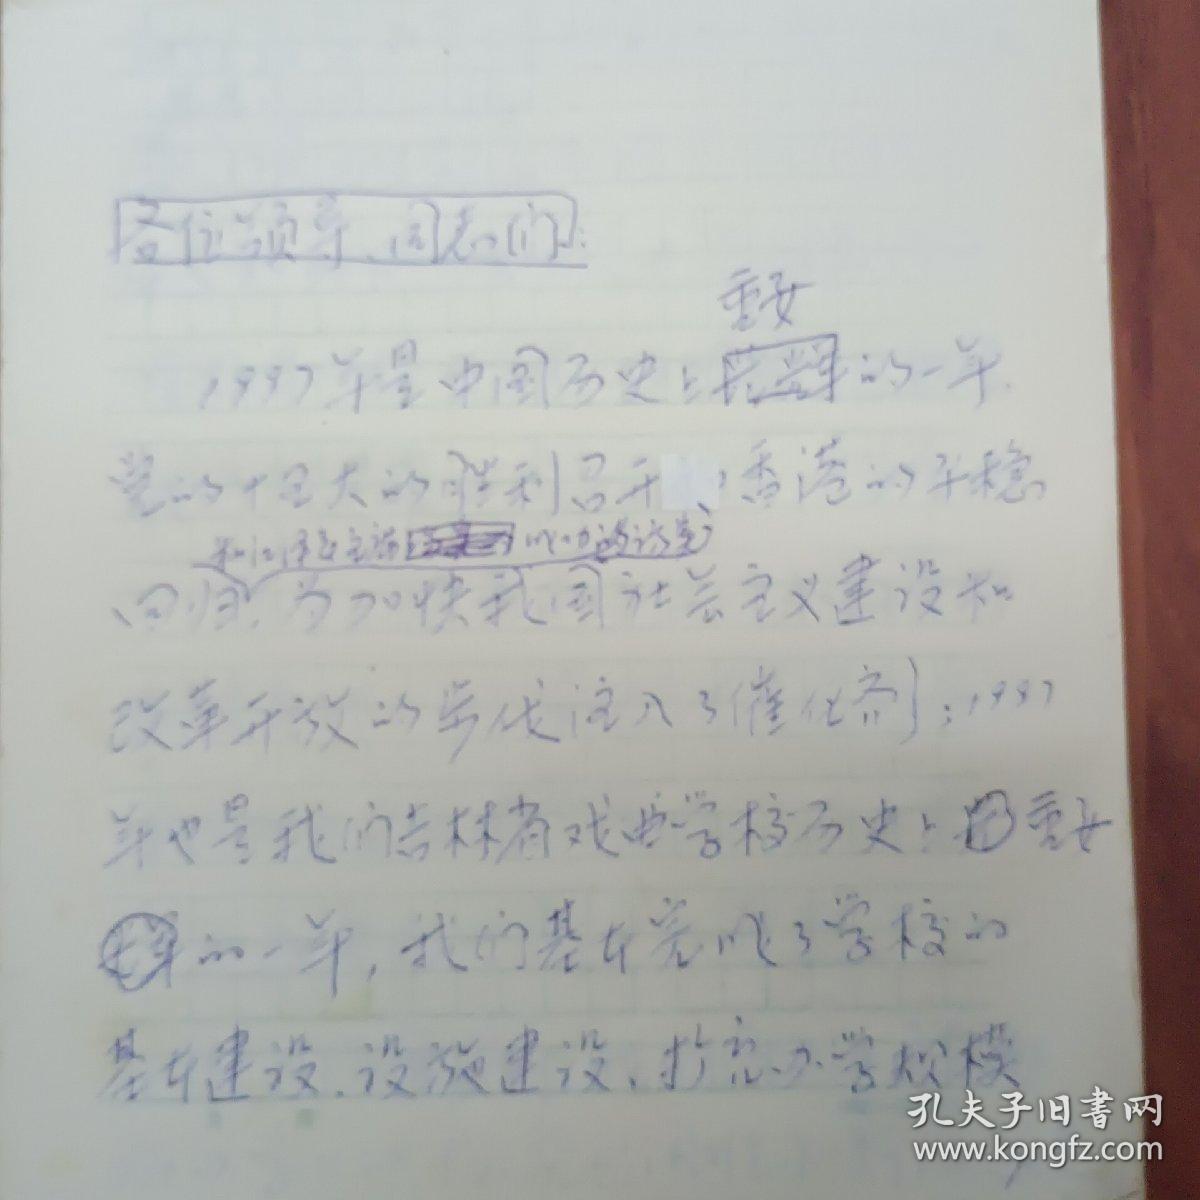 各位领导、同志们:
重要
1997年是中国历史上光辉的一年.
党的十五大的胜利召开 香港的平稳
和江泽民主席 成功的访美
回归,为加快我国社会主义建设和
改革开放的步伐注入了催化剂;1997
年也是我们吉林省戏曲学校历史上 重要
的一年,我们基本完成了学校的
基本建设、设施建设、扩充办学规模
孔夫子旧書网
www.kongfz.com